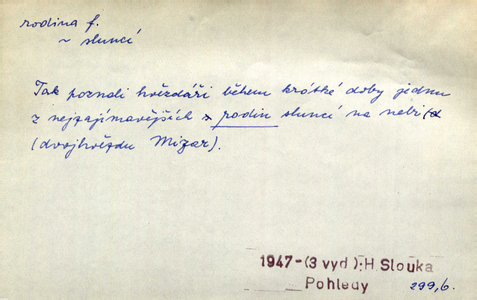 rodina f.
~ sluncí
Tak poznali hvězdáři během krátké doby jednu
z nejzajímavějších rodin sluncí na nebi
(dvojhvězdu Mizar).
1947-(3 vyd):H Slouka
Pohledy 299,6.